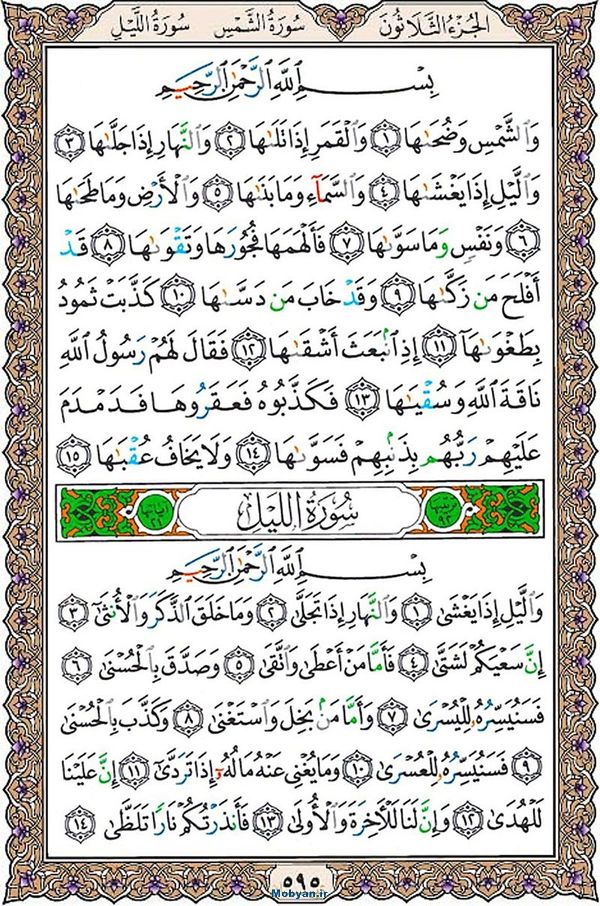 الجزء الثلاثون سورة الشمس سورة الليل
بِسْمِ ٱللَّهِ ٱلرَّحْمَٰنِ ٱلرَّحِيمِ
وَٱلشَّمْسِ وَضُحَىٰهَا ١ وَٱلْقَمَرِ إِذَا تَلَىٰهَا ٢ وَٱلنَّهَارِ إِذَا جَلَّىٰهَا ٣
وَٱلَّيْلِ إِذَا يَغْشَىٰهَا ٤ وَٱلسَّمَآءِ وَمَا بَنَىٰهَا ٥ وَٱلْأَرْضِ وَمَا طَحَىٰهَا
٦ وَنَفْسٍ وَمَا سَوَّىٰهَا ٧ فَأَلْهَمَهَا فُجُورَهَا وَتَقْوَىٰهَا ٨ قَدْ
أَفْلَحَ مَن زَكَّىٰهَا ٩ وَقَدْ خَابَ مَن دَسَّىٰهَا ١٠ كَذَّبَتْ ثَمُودُ
بِطَغْوَىٰهَآ ١١ إِذِ ٱنۢبَعَثَ أَشْقَىٰهَا ١٢ فَقَالَ لَهُمْ رَسُولُ ٱللَّهِ
نَاقَةَ ٱللَّهِ وَسُقْيَٰهَا ١٣ فَكَذَّبُوهُ فَعَقَرُوهَا فَدَمْدَمَ
عَلَيْهِمْ رَبُّهُم بِذَنۢبِهِمْ فَسَوَّىٰهَا ١٤ وَلَا يَخَافُ عُقْبَٰهَا ١٥
ترتيبها ٩٢ سورة الليل آياتها ٢١
بِسْمِ ٱللَّهِ ٱلرَّحْمَٰنِ ٱلرَّحِيمِ
وَٱلَّيْلِ إِذَا يَغْشَىٰ ١ وَٱلنَّهَارِ إِذَا تَجَلَّىٰ ٢ وَمَا خَلَقَ ٱلذَّكَرَ وَٱلْأُنثَىٰٓ ٣
إِنَّ سَعْيَكُمْ لَشَتَّىٰ ٤ فَأَمَّا مَنْ أَعْطَىٰ وَٱتَّقَىٰ ٥ وَصَدَّقَ بِٱلْحُسْنَىٰ ٦
فَسَنُيَسِّرُهُۥ لِلْيُسْرَىٰ ٧ وَأَمَّا مَنۢ بَخِلَ وَٱسْتَغْنَىٰ ٨ وَكَذَّبَ بِٱلْحُسْنَىٰ
٩ فَسَنُيَسِّرُهُۥ لِلْعُسْرَىٰ ١٠ وَمَا يُغْنِى عَنْهُ مَالُهُۥٓ إِذَا تَرَدَّىٰٓ ١١ إِنَّ عَلَيْنَا
لَلْهُدَىٰ ١٢ وَإِنَّ لَنَا لَلْـَٔاخِرَةَ وَٱلْأُولَىٰ ١٣ فَأَنذَرْتُكُمْ نَارًا تَلَظَّىٰ ١٤
٥٩٥
Mobyan.ir